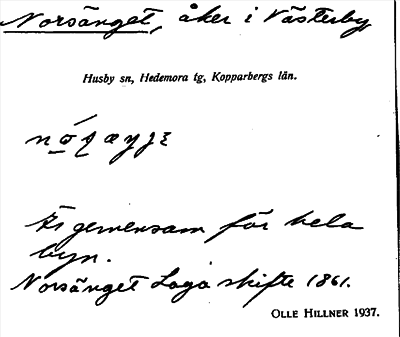 Norsänget, åker i Västerby
Husby sn, Hedemora tg, Kopparbergs län.
Är gemensam för hela
byn.
Norsänget Laga skifte 1861.
OLLE HILLNER 1937.